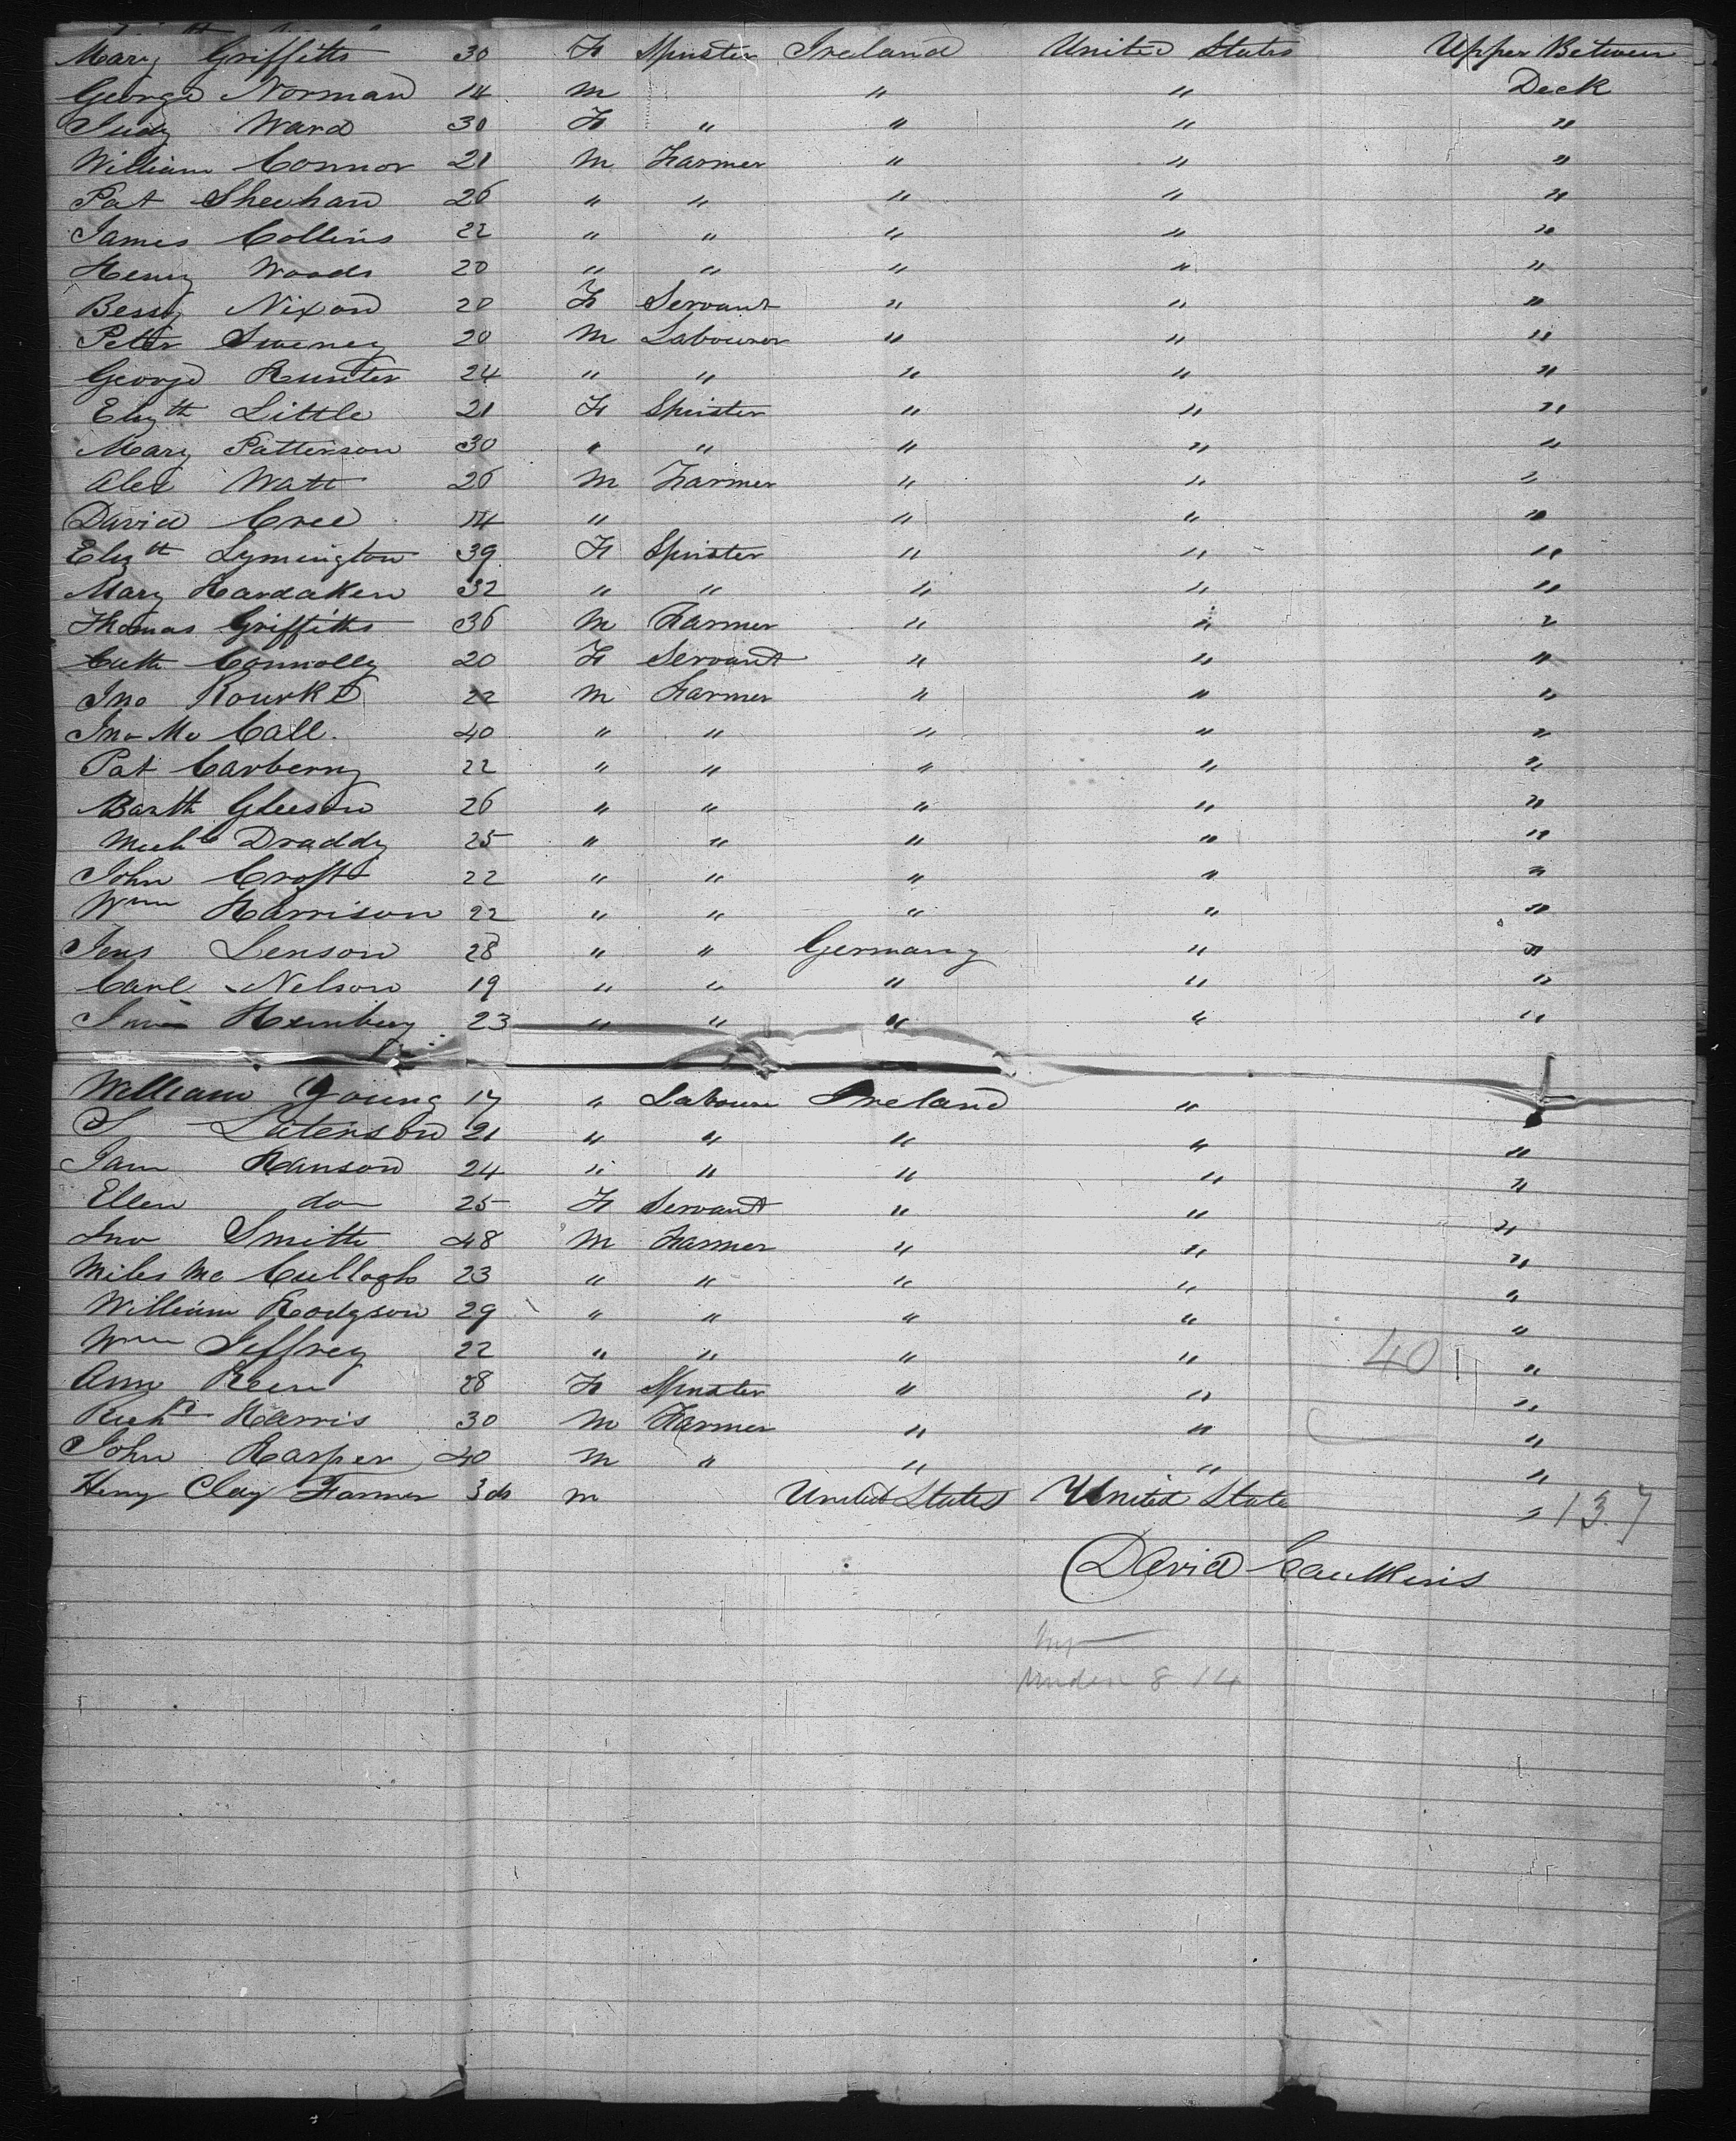 Mary Griffiths 30 F Spinster Ireland United States Upper Between
George Norman 14 M " " Deck
Judy Ward 30 F " " " "
William Connor 21 M Farmer " " "
Pat Sheehan 26 " " " " "
James Collins 22 " " " " "
Henry Woods 20 " " " " "
Bessy Nixon 20 F Servant " " "
Peter Sweney 20 M Labourer " " "
George Hunter 24 " " " " "
Elizth Little 21 F Spinster " " "
Mary Patterson 30 " " " " "
Alex Watt 26 M Farmer " " "
David Cree 14 " " " "
Elizth Lymington 39 F Spinster " " "
Mary Hardaken 32 " " " " "
Thomas Griffiths 36 M Farmer " " "
Cath Connolly 20 F Servant " " "
Jno Rourke 22 M Farmer " " "
Jno Mc Call. 40 " " " " "
Pat Carberry 22 " " " " "
Barth Gleeson 26 " " " " "
Michl Draddy 25 " " " " "
John Croft 22 " " " " "
Wm Harrison 22 " " " " "
Jens Lenson 28 " " Germany " "
Carl Nelson 19 " " " " "
23 " " " " "
William Young 17 " Laboure Ireland " "
S Latenson 21 " " " " "
Jam Hanson 24 " " " " "
Ellen do 25 F Servant " " "
Jno Smith 48 M Farmer " " "
Miles Mc Cullagh 23 " " " " "
William Hodgson 29 " " " " "
Wm Jeffrey 22 " " " " "
40
Ann 28 F Spinster " " "
Richd Harris 30 M Farmer " " "
John Harper 40 M " " " "
Henry Clay Farmer 3 ds M United States United State " 137
David Caulkins
Under 8 14